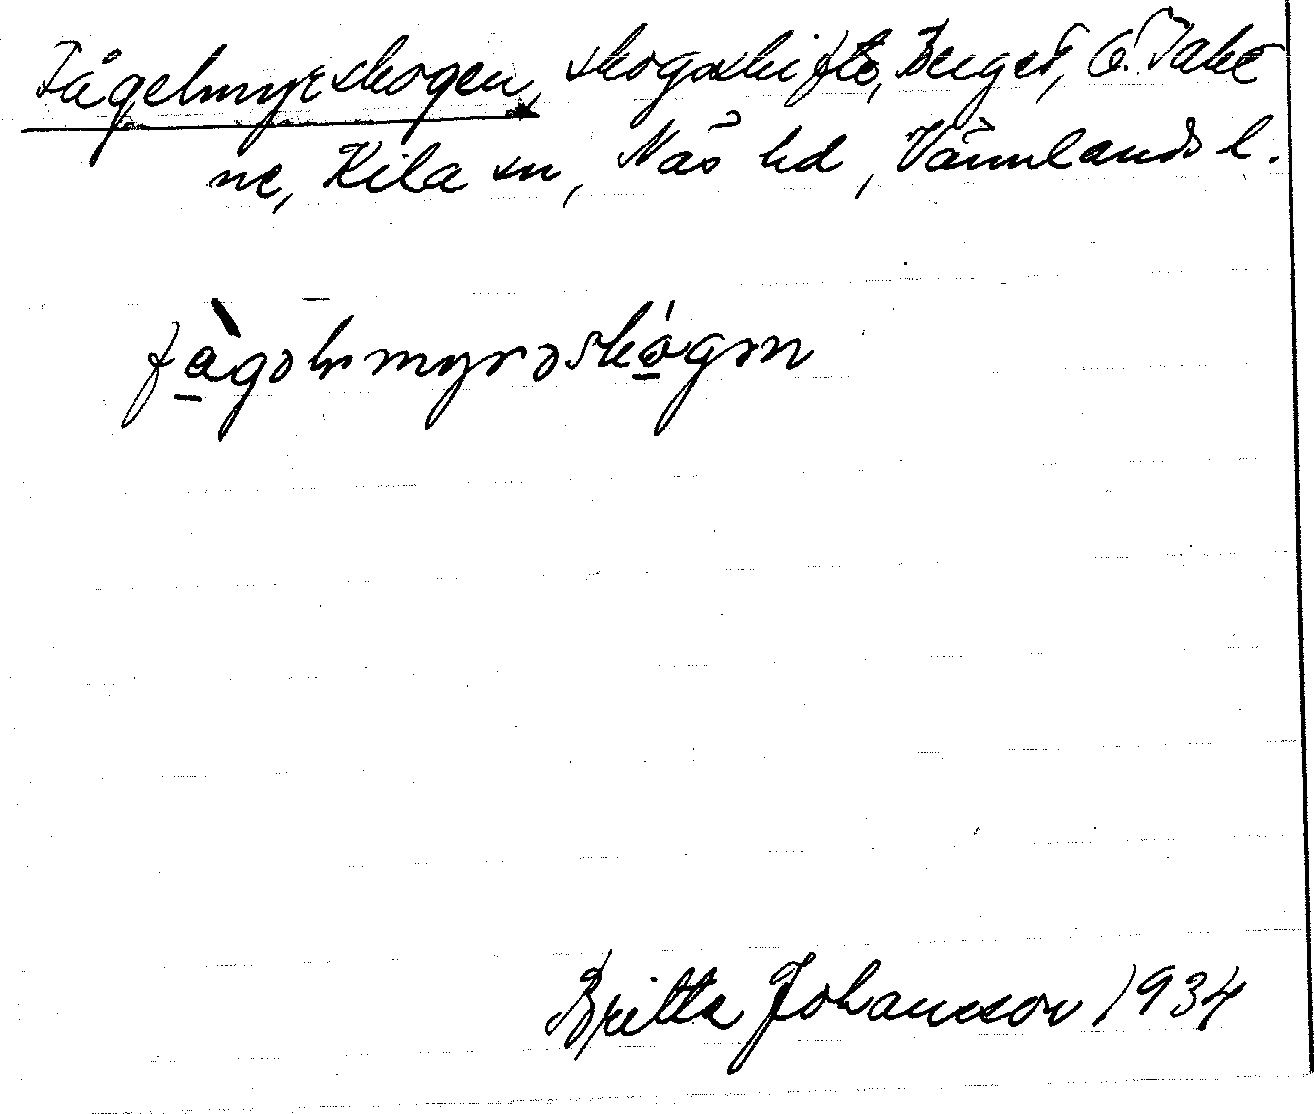 Fågelmyrskogen, skogsskifte, Berget, Ö. Take
ne, Kila sn, Näs hd, Värmlands l.
fågəlmyrəskógən
Britta Johansson 1934